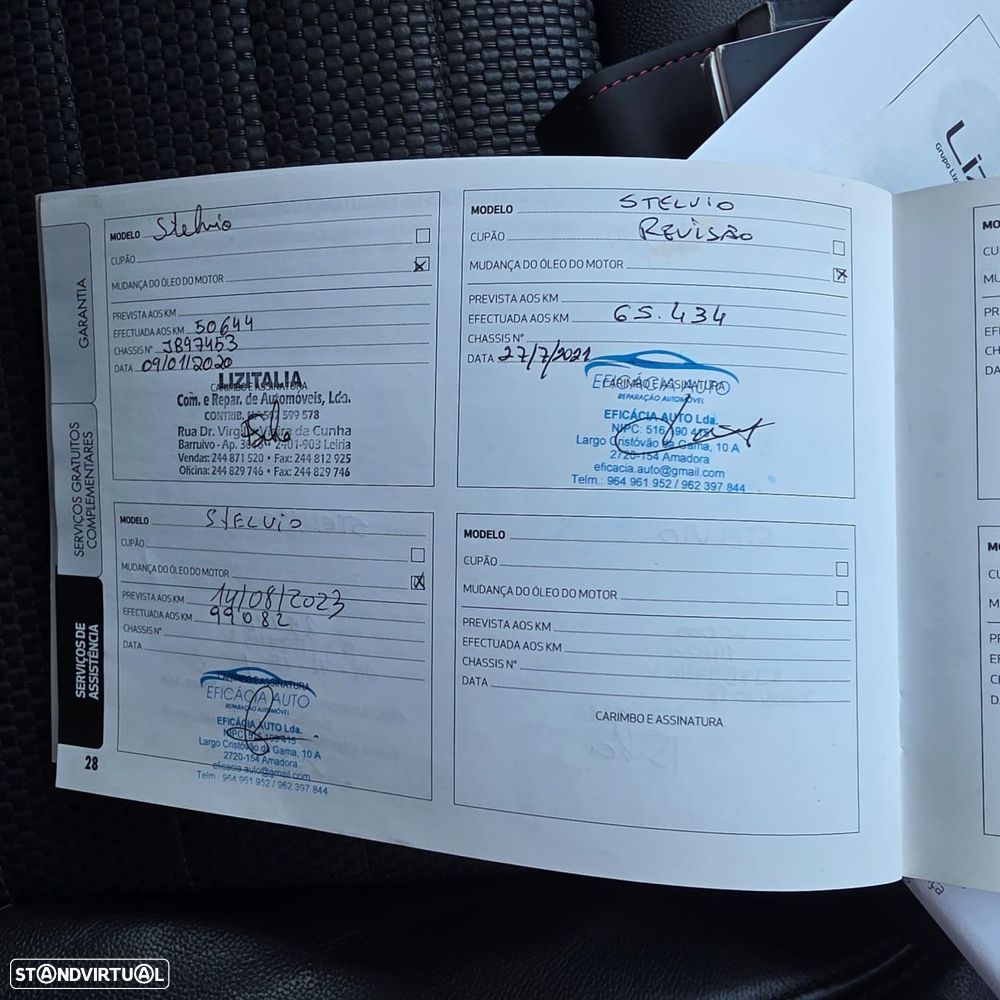 GARANTIA
SERVIÇOS GRATUITOS
COMPLEMENTARES
SERVIÇOS DE
ASSISTÊNCIA
28
MODELO Stelvio
CUPÃO
MUDANÇA DO ÓLEO DO MOTOR X
PREVISTA AOS KM
EFECTUADA AOS KM 50644
CHASSIS Nº J897453
DATA 09/01/2020
CARIMBO E ASSINATURA
LIZITALIA
Com. e Repar. de Automóveis, Lda.
CONTRIB. 599 578
Rua Dr. Virgílio Vieira da Cunha
Barruivo - Ap. 2401-903 Leiria
Vendas: 244 871 520 • Fax: 244 812 925
Oficina: 244 829 746 • Fax: 244 829 746
MODELO STELVIO
CUPÃO REVISÃO
MUDANÇA DO ÓLEO DO MOTOR X
PREVISTA AOS KM
EFECTUADA AOS KM 65.434
CHASSIS Nº
DATA 27/7/2021
CARIMBO E ASSINATURA
EFICÁCIA AUTO
REPARAÇÃO AUTOMÓVEL
EFICÁCIA AUTO Lda.
NIPC: 516 190 415
Largo Cristóvão da Gama, 10 A
2720-154 Amadora
eficacia.auto@gmail.com
Telm.: 964 961 952 / 962 397 844
MODELO STELVIO
CUPÃO
MUDANÇA DO ÓLEO DO MOTOR X
PREVISTA AOS KM 14/08/2023
EFECTUADA AOS KM 99082
CHASSIS Nº
DATA
CARIMBO E ASSINATURA
EFICÁCIA AUTO
REPARAÇÃO AUTOMÓVEL
EFICÁCIA AUTO Lda.
NIPC: 516 190 415
Largo Cristóvão da Gama, 10 A
2720-154 Amadora
eficacia.auto@gmail.com
Telm.: 964 961 952 / 962 397 844
MODELO
CUPÃO
MUDANÇA DO ÓLEO DO MOTOR
PREVISTA AOS KM
EFECTUADA AOS KM
CHASSIS Nº
DATA
CARIMBO E ASSINATURA
Grupo
STANDVIRTUAL